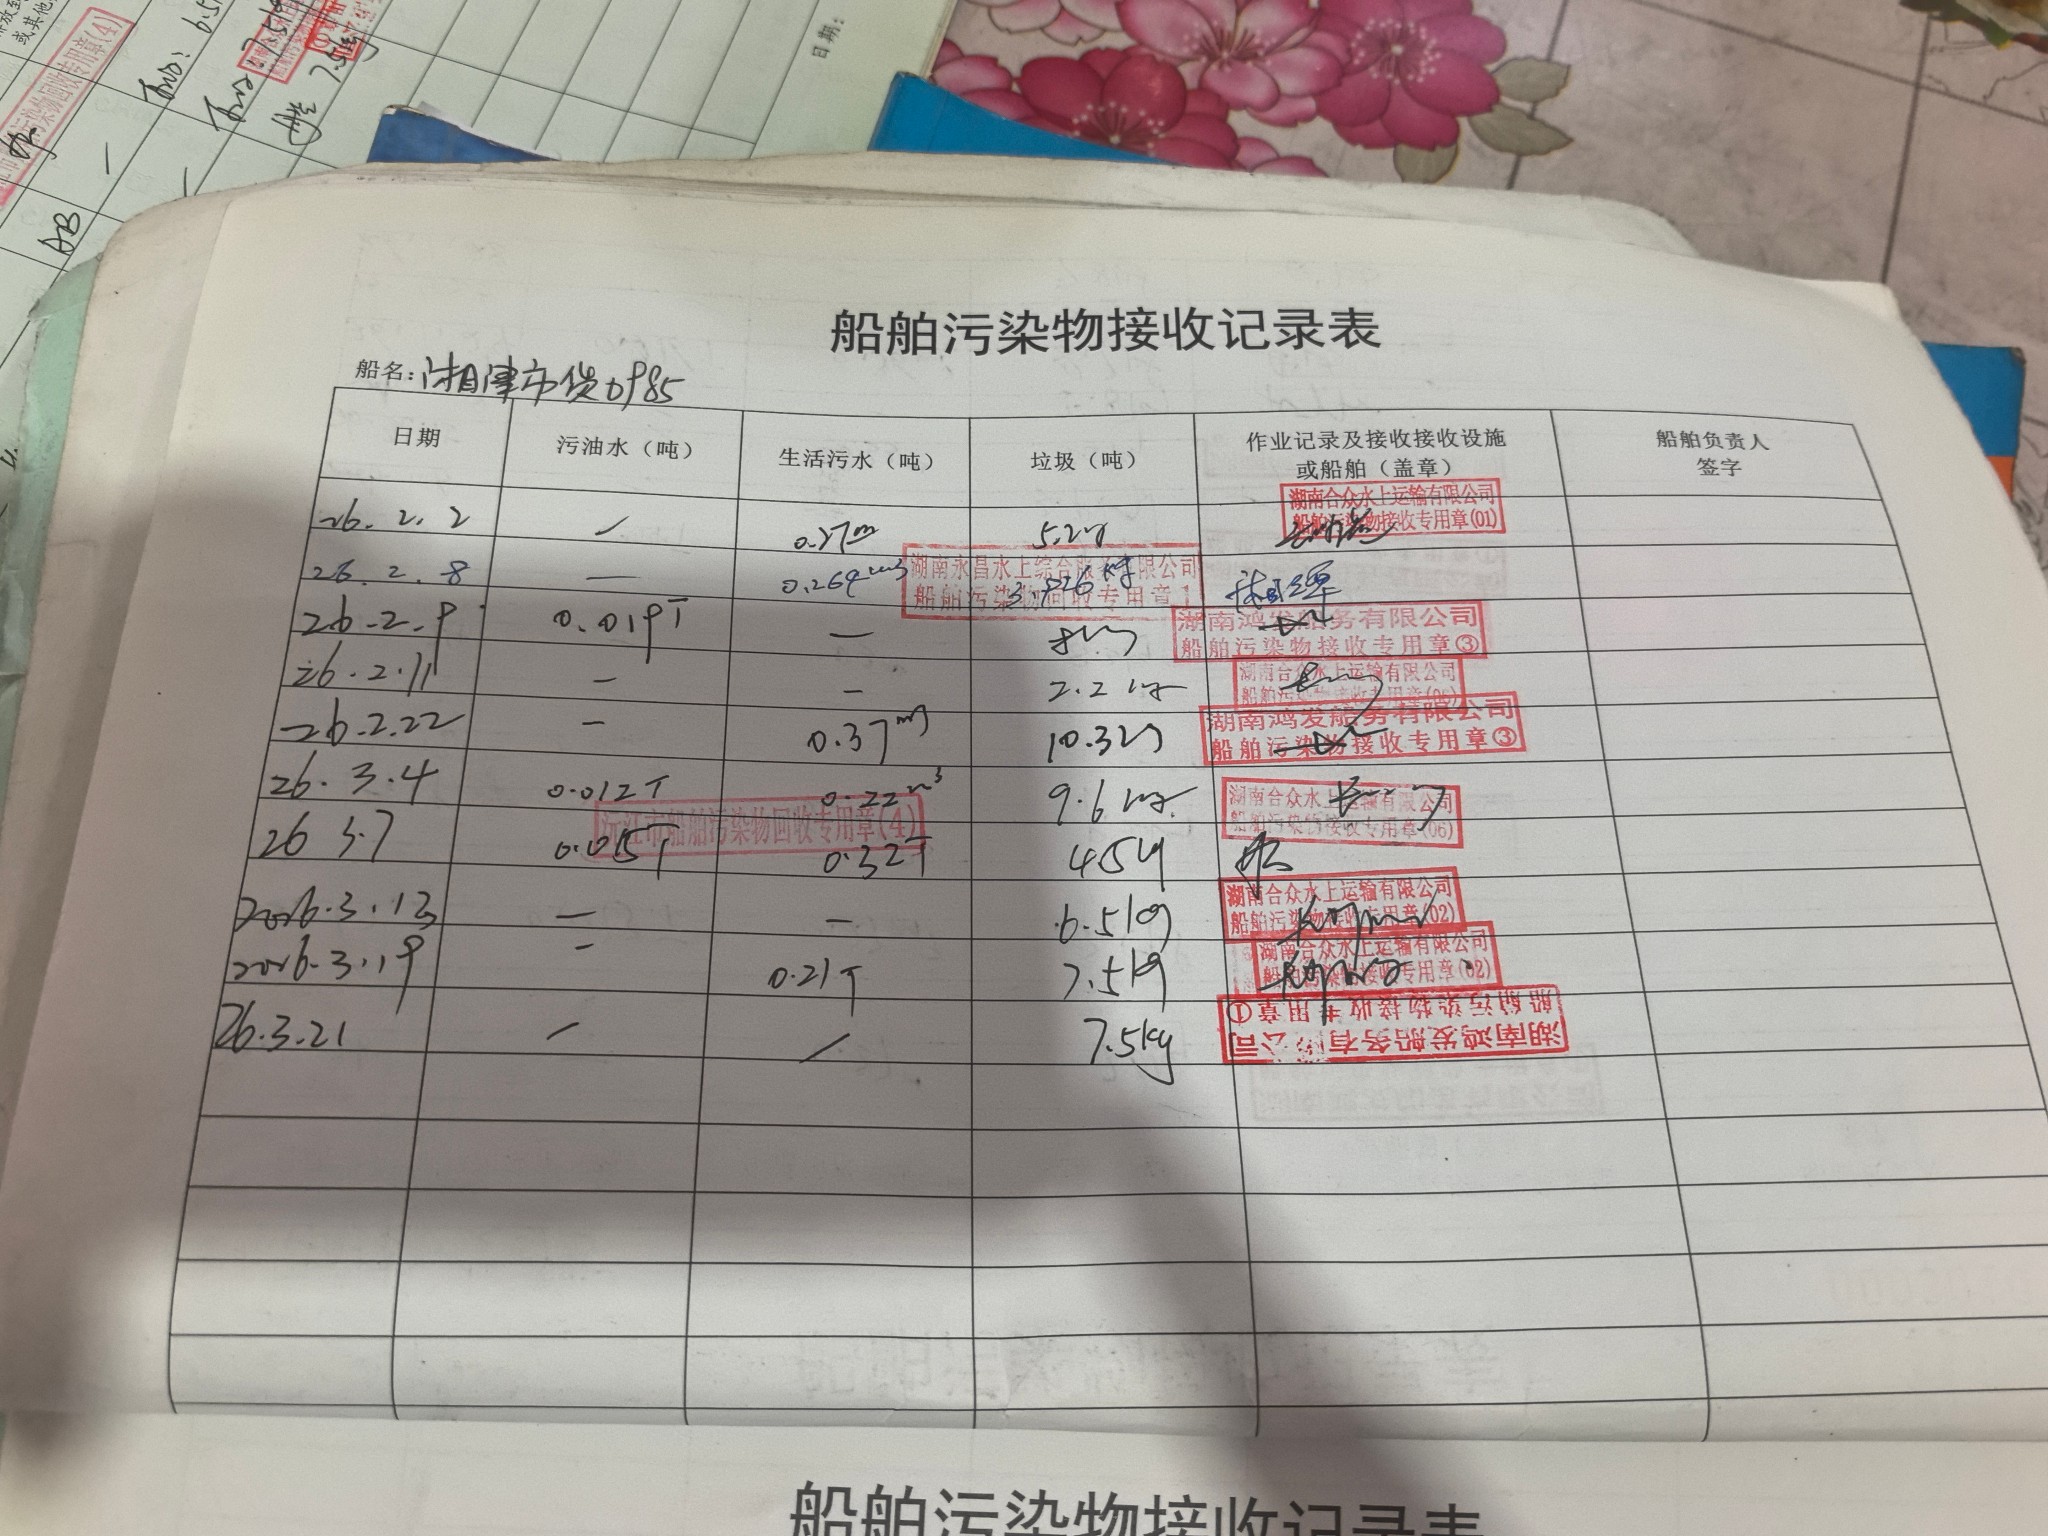 日期:
AB
船舶污染物接收记录表
船名: 湘津市货0985
日期 污油水（吨） 生活污水（吨） 垃圾（吨） 作业记录及接收接收设施或船舶（盖章） 船舶负责人签字
26.2.2 / 5.2 湖南合众水上运输有限公司 船舶污染物接收专用章(01)
26.2.8 — 0.264m³ 湖南永昌水上综合服务有限公司 船舶污染物回收专用章1
26.2.9 0.019T — 湖南鸿发船务有限公司 船舶污染物接收专用章③
26.2.11 — — 2.2kg 湖南合众水上运输有限公司 船舶污染物接收专用章
26.2.22 — 0.37 10.3 湖南鸿发船务有限公司 船舶污染物接收专用章③
26.3.4 0.012T 0.22m³ 9.6kg 湖南合众水上运输有限公司 船舶污染物接收专用章(06)
26 3.7 0.015T 0.32T 4.5kg 沅江市船舶污染物回收专用章(4)
2026.3.13 — — 6.5kg 湖南合众水上运输有限公司 船舶污染物接收专用章(02)
2026.3.19 — 0.21T 7.5kg 湖南合众水上运输有限公司 船舶污染物接收专用章(02)
26.3.21 / / 7.5kg 湖南鸿发船务有限公司 船舶污染物接收专用章①
船舶污染物接收记录表